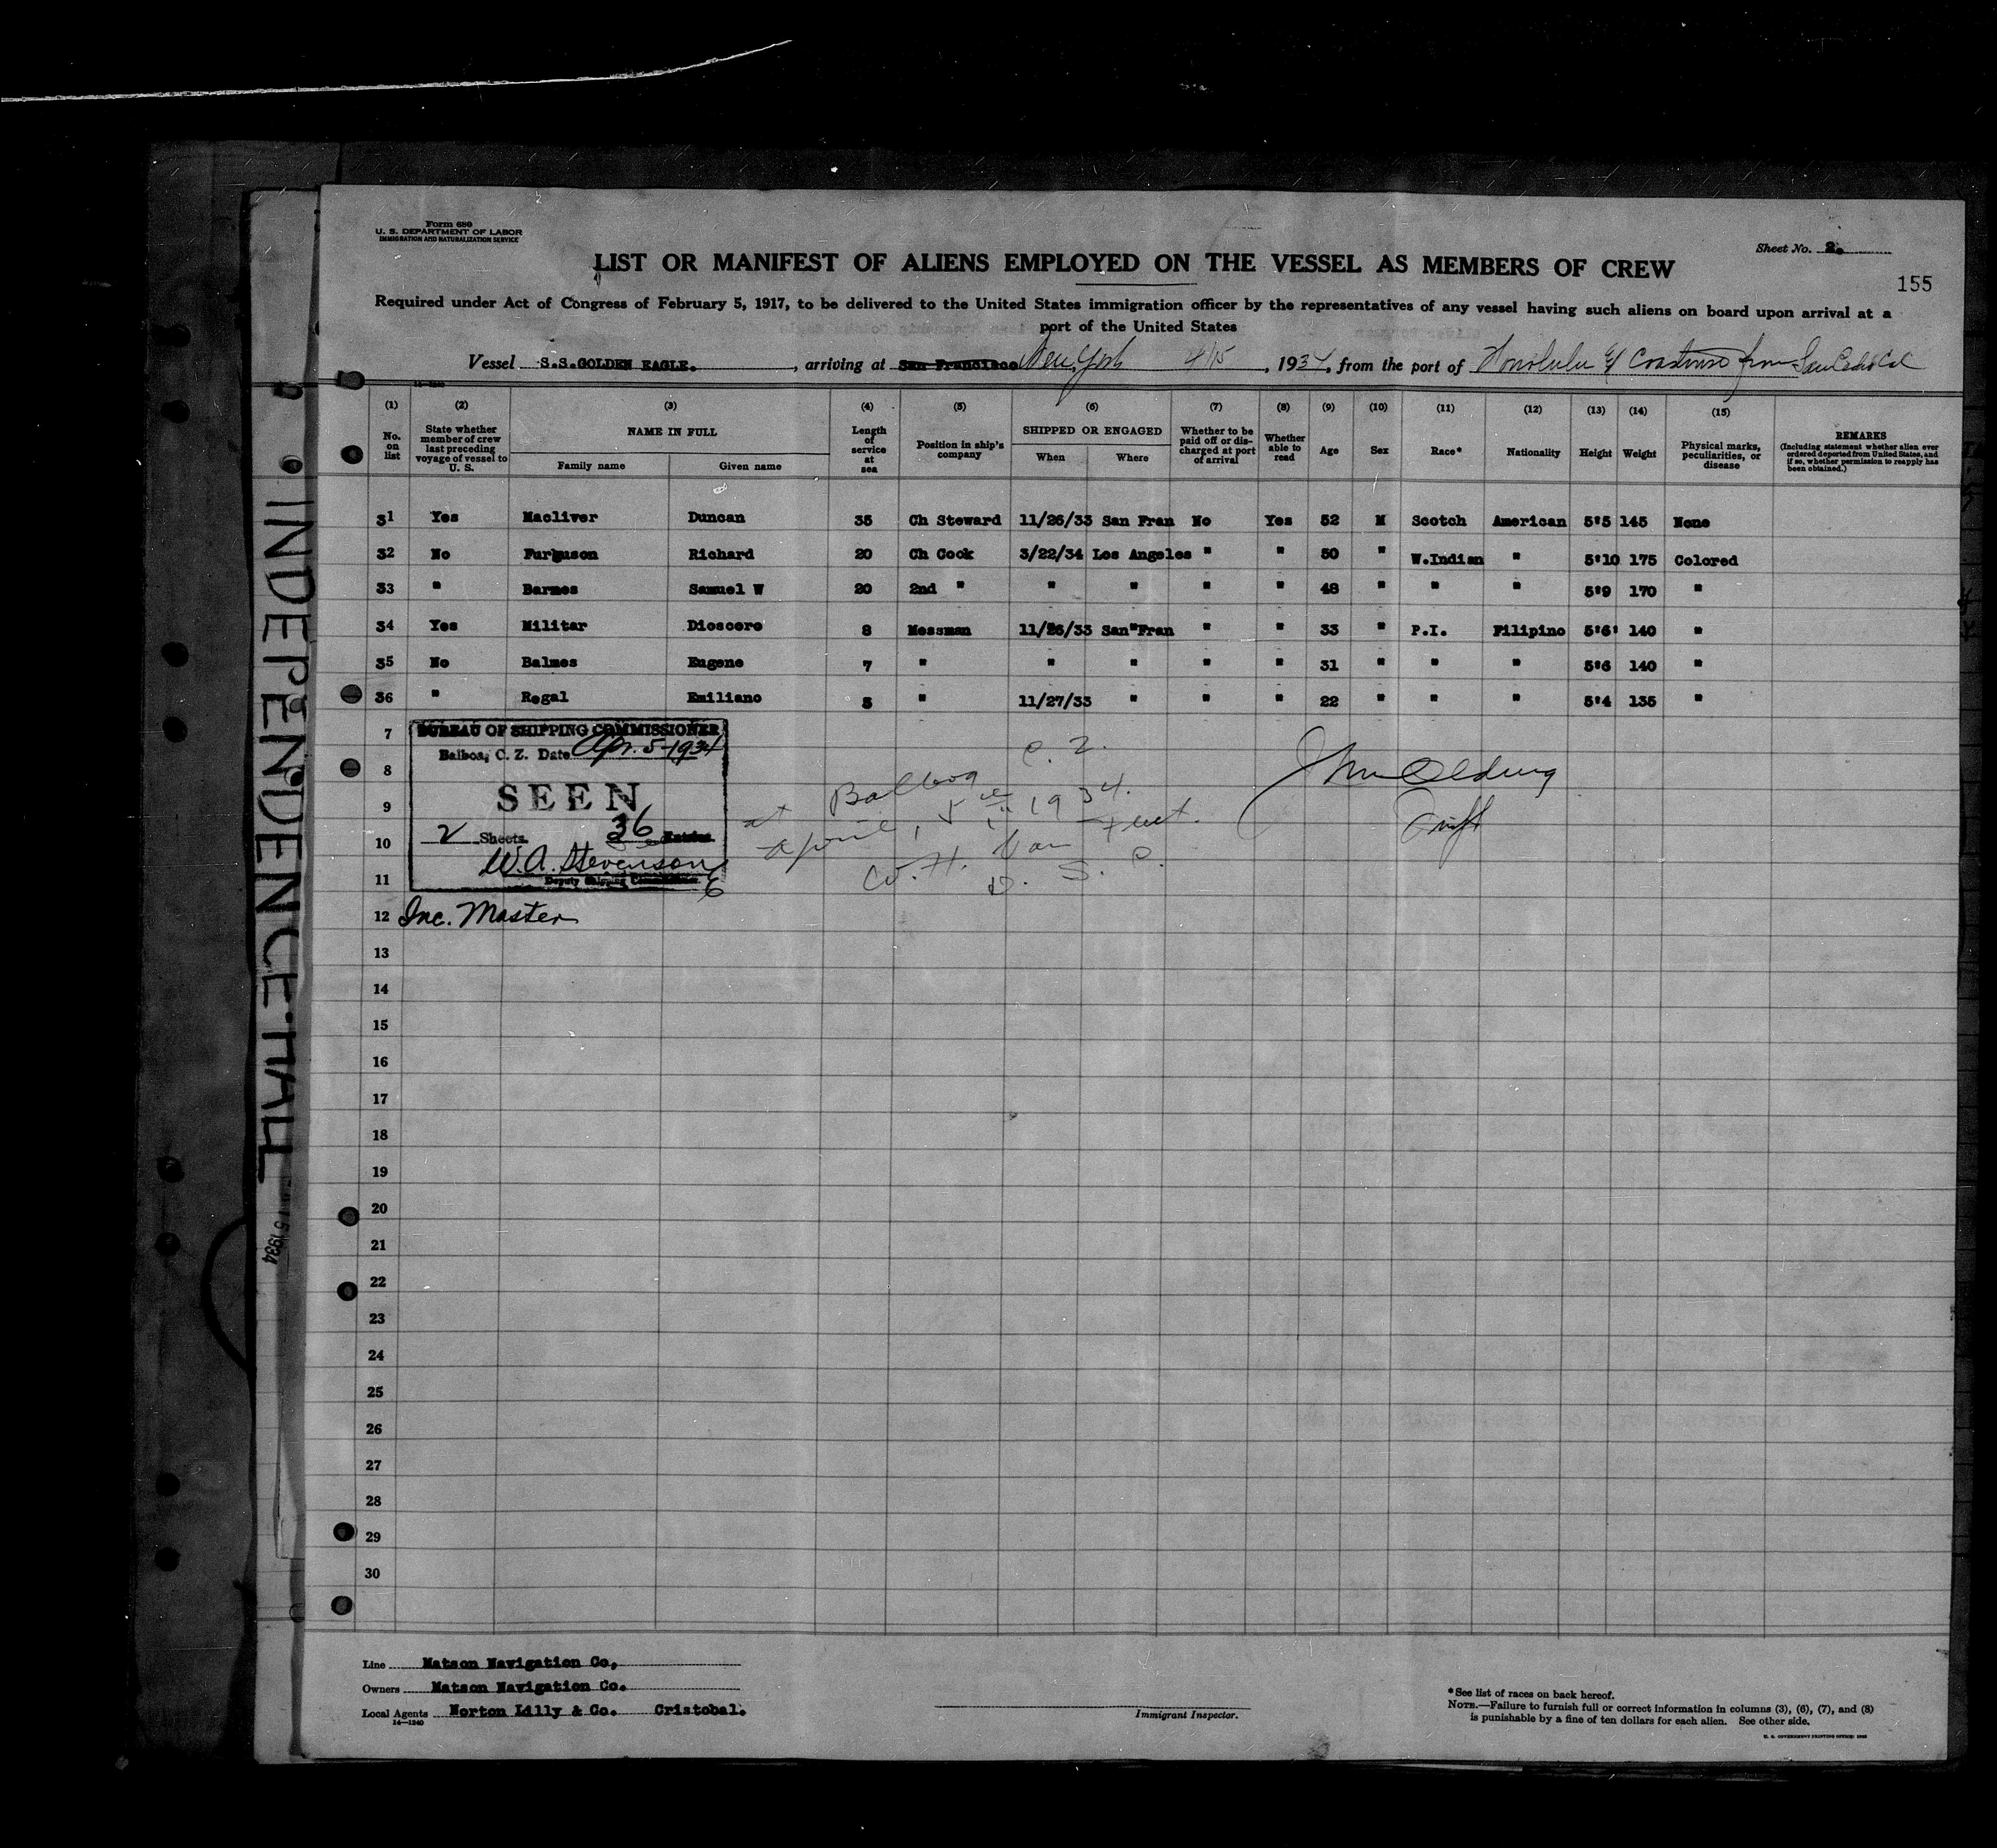 Form 680
U. S. DEPARTMENT OF LABOR
IMMIGRATION AND NATURALIZATION SERVICE
Sheet No. 2.
LIST OR MANIFEST OF ALIENS EMPLOYED ON THE VESSEL AS MEMBERS OF CREW
155
Required under Act of Congress of February 5, 1917, to be delivered to the United States immigration officer by the representatives of any vessel having such aliens on board upon arrival at a
port of the United States
Vessel S.S.GOLDEN EAGLE. , arriving at San Francisco New York 4/15 , 1934, from the port of Honolulu & Coastwise from San Pedro Cal
14-1240
(1) (2) (3) (4) (5) (6) (7) (8) (9) (10) (11) (12) (13) (14) (15)
No. on list State whether member of crew last preceding voyage of vessel to U. S. NAME IN FULL Family name Given name Length of service at sea Position in ship's company SHIPPED OR ENGAGED When Where Whether to be paid off or discharged at port of arrival Whether able to read Age Sex Race* Nationality Height Weight Physical marks, peculiarities, or disease REMARKS (Including statement whether alien ever ordered deported from United States, and if so, whether permission to reapply has been obtained.)
31 Yes Macliver Duncan 35 Ch Steward 11/26/33 San Fran No Yes 52 M Scotch American 5'5 145 None
32 No Furguson Richard 20 Ch Cook 3/22/34 Los Angeles " " 50 " W.Indian " 5'10 175 Colored
33 " Barnes Samuel W 20 2nd " " " " " 48 " " " 5'9 170 "
34 Yes Militar Dioscoro 8 Messman 11/26/33 San"Fran " " 33 " P.I. Filipino 5'6' 140 "
35 No Balmes Eugene 7 " " " " " 31 " " " 5'6 140 "
36 " Regal Emiliano 5 " 11/27/33 " " " 22 " " " 5'4 135 "
7
BUREAU OF SHIPPING COMMISSIONER
Balboa, C. Z. Date Apr. 5-1934
8
SEEN
9
2 Sheets 36 Entries
10
W.A. Stevenson
Deputy Shipping Commissioner
11
at Balboa C. Z.
April, 5th 1934.
W. H. Van
D. S. C.
12 Inc. Master
13
14
15
16
17
18
19
20
21
22
23
24
25
26
27
28
29
30
INDEPENDENCE HALL
15 1934
Line Matson Navigation Co,
Owners Matson Navigation Co.
Local Agents Norton Lilly & Co. Cristobal.
14-1240
Immigrant Inspector.
*See list of races on back hereof.
NOTE.—Failure to furnish full or correct information in columns (3), (6), (7), and (8)
is punishable by a fine of ten dollars for each alien. See other side.
U. S. GOVERNMENT PRINTING OFFICE: 1932